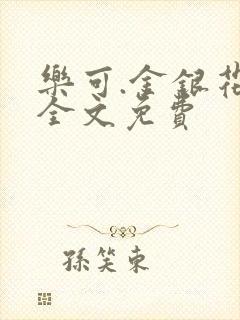 樂可.金銀花
全文免費
孫笑東